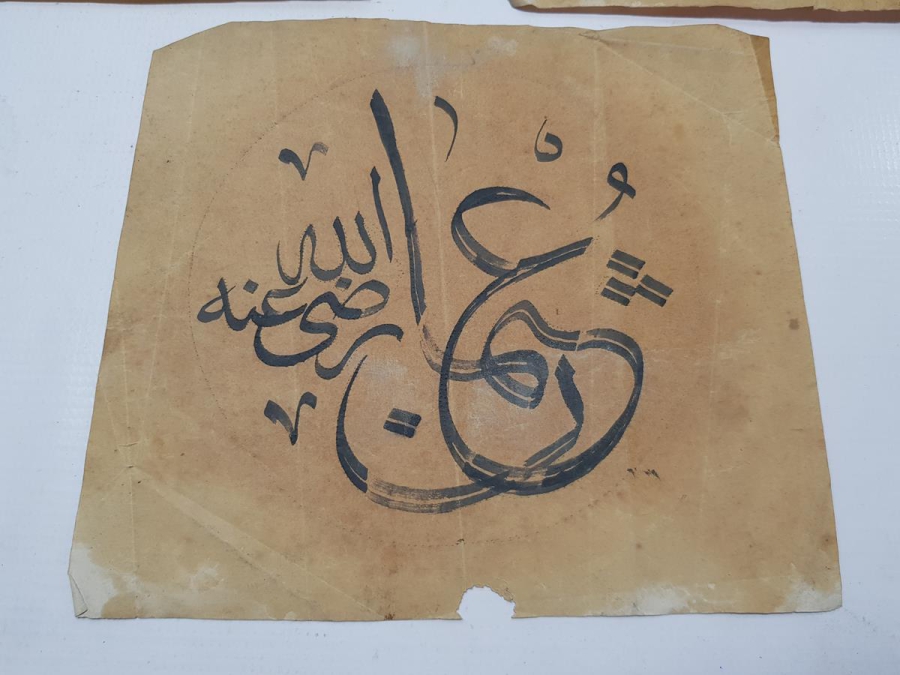 عُثمان
رضى الله عنه